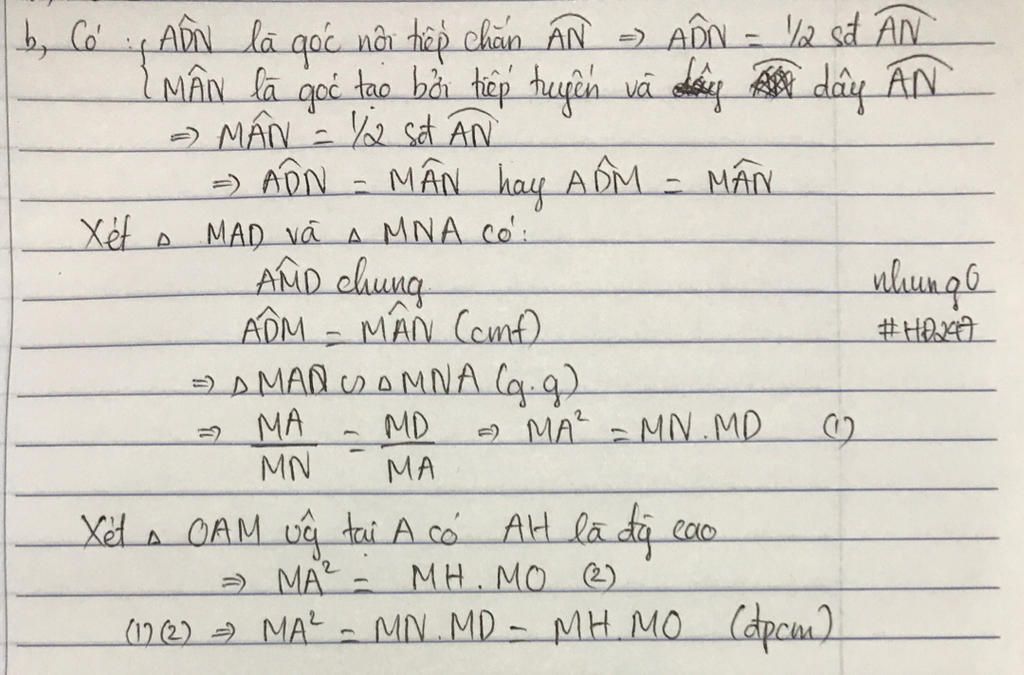 b, Có : { AD̂N là góc nội tiếp chắn A͡N => AD̂N = 1/2 sđ A͡N
MÂN là góc tạo bởi tiếp tuyến và dây A͡N
=> MÂN = 1/2 sđ A͡N
=> AD̂N = MÂN hay AD̂M = MÂN
Xét △ MAD và △ MNA có:
AM̂D chung
nhungG
AD̂M = MÂN (cmt)
#HĐ247
=> △MAD ∽ △MNA (g.g)
=> MA/MN = MD/MA => MA² = MN.MD (1)
Xét △ OAM vĝ tại A có AH là đg̀ cao
=> MA² = MH.MO (2)
(1)(2) => MA² = MN.MD = MH.MO (đpcm)